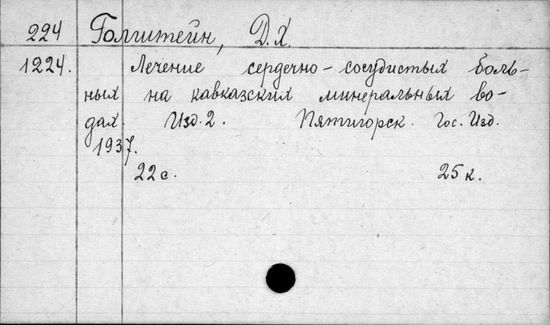 224 Голштейн, Д.Х.
1224. Лечение сердечно-сосудистых боль-
ных на кавказских минеральных во-
дах. Изд. 2. Пятигорск. Гос. Изд.
1937.
22 с. 25 к.